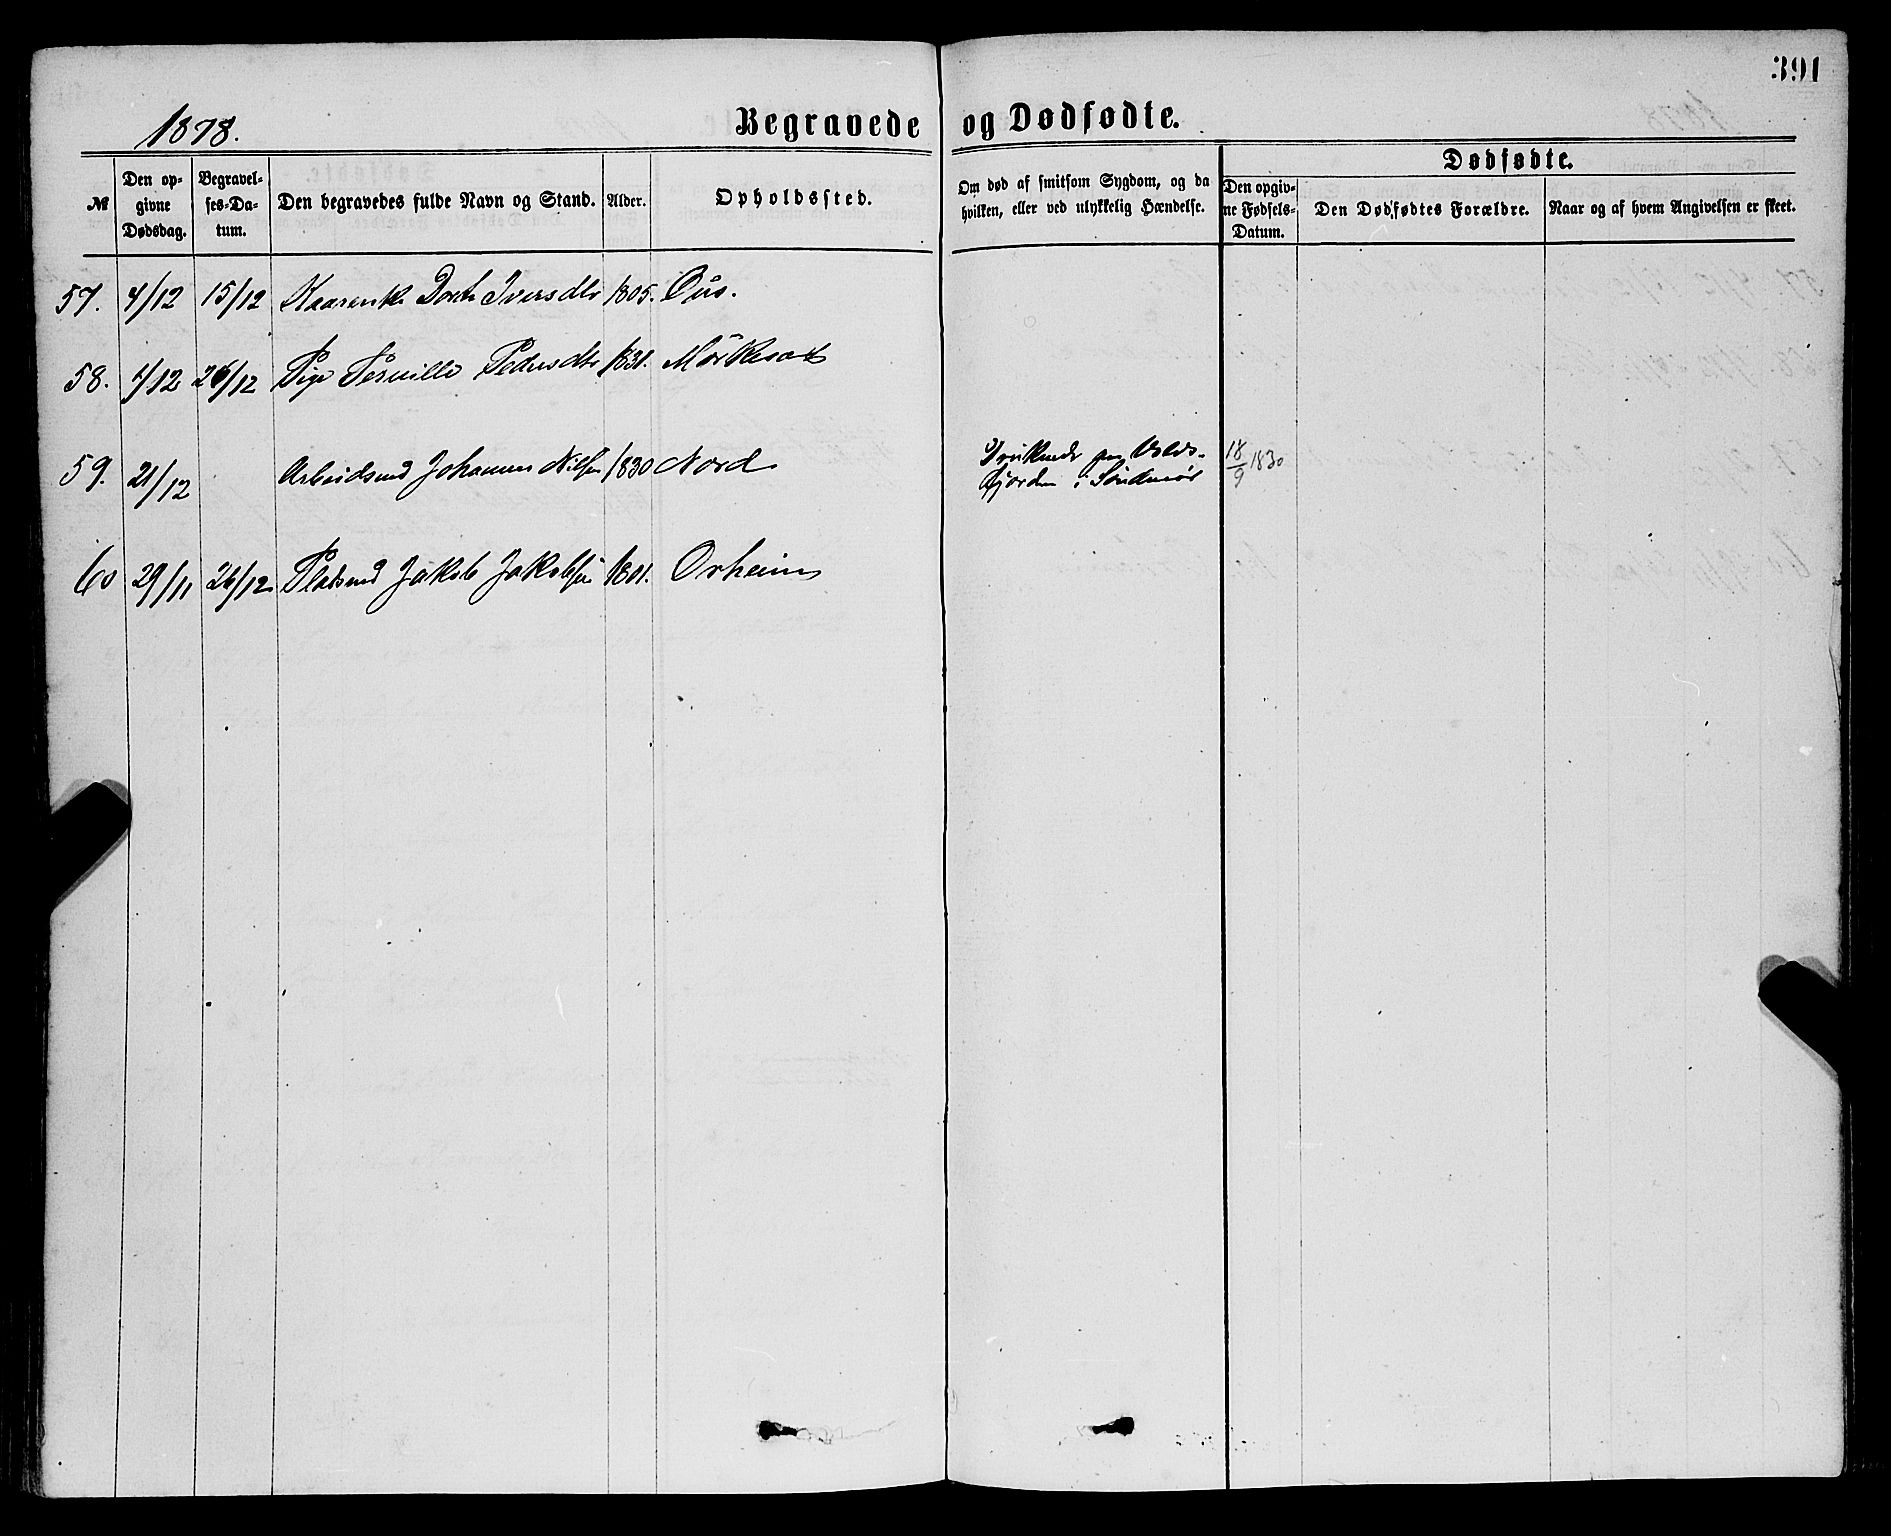 391
1878.
Begravede og Dødfødte.
№
Den opgivne Dødsdag.
Begravelses-Datum.
Den begravedes fulde Navn og Stand.
Alder.
Opholdssted.
Om død af smitsom Sygdom, og da hvilken, eller ved ulykkelig Hændelse.
Dødfødte.
Den opgivne Fødsels-Datum.
Den Dødfødtes Forældre.
Naar og af hvem Angivelsen er skeet.
57. 4/12 15/12 Iversdtr 1805. Øus.
58. 4/12 26/12 Pige Pernille Pedersdtr 1831. Mørkesat
59. 21/12 Arbeidsmd Johannes Nilsen 1830 Nord
Fjorden i Søndmør 18/9 1830
60 29/11 26/12 Pladsmd Jakob Jakobsen 1801. Orheim